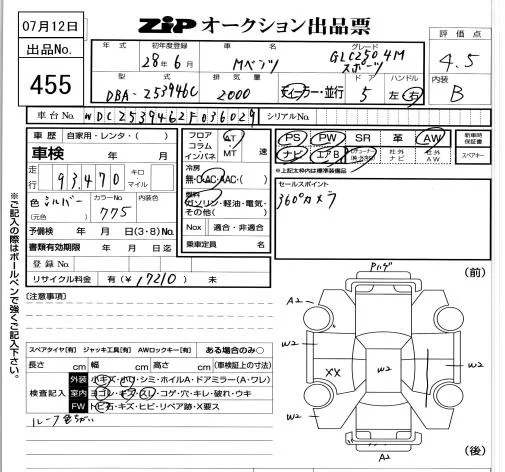 07月12日
ZiP オークション出品票
出品No.
455
年式 初年度登録 車名 グレード
28年6月 Mベンツ GLC250 4M スポーツ
評価点
4.5
型式 排気量 ドア ハンドル
DBA-253946C 2000 ディーラー・並行 5 左・右
内装
B
車台No. WDC2539462F036029 シリアルNo.
車歴 自家用・レンタ・( )
車検 年 月
走行 93,470 キロ マイル
色 シルバー カラーNo. 775 内装色
(元色)
予備検 年 月 日(3・8)No.
書類有効期限 年 月 日迄
登録No.
リサイクル料金 有(¥17210) 未
フロア コラム インパネ AT MT 速
冷房
無・AC・AAC・( )
燃料
ガソリン・軽油・電気・その他( )
Nox 適合・非適合
乗車定員 名
PS PW SR 革 AW
ナビ エアB 社外ナビ 社外AW
新車時保証書
スペアキー
※上記太枠内は標準装備品
セールスポイント
360°カメラ
※ご記入の際はボールペンで強くご記入下さい。
[注意事項]
スペアタイヤ[有] ジャッキ工具[有] AWロックキー[有] ある場合のみ○
長さ cm 幅 cm 高さ cm (車検証上の寸法)
検査記入
外装 小キズ・小凹・シミ・ホイルA・ドアミラー(A・ワレ)
室内 ヨゴレ・キズ・スレ・コゲ・穴・キレ・破れ・ウキ
FW トビ石・キズ・ヒビ・リペア跡・X要ス
ルーフ色ちがい
(前)
A2
W2
W2
W2
XX
W2
W2
A2
(後)